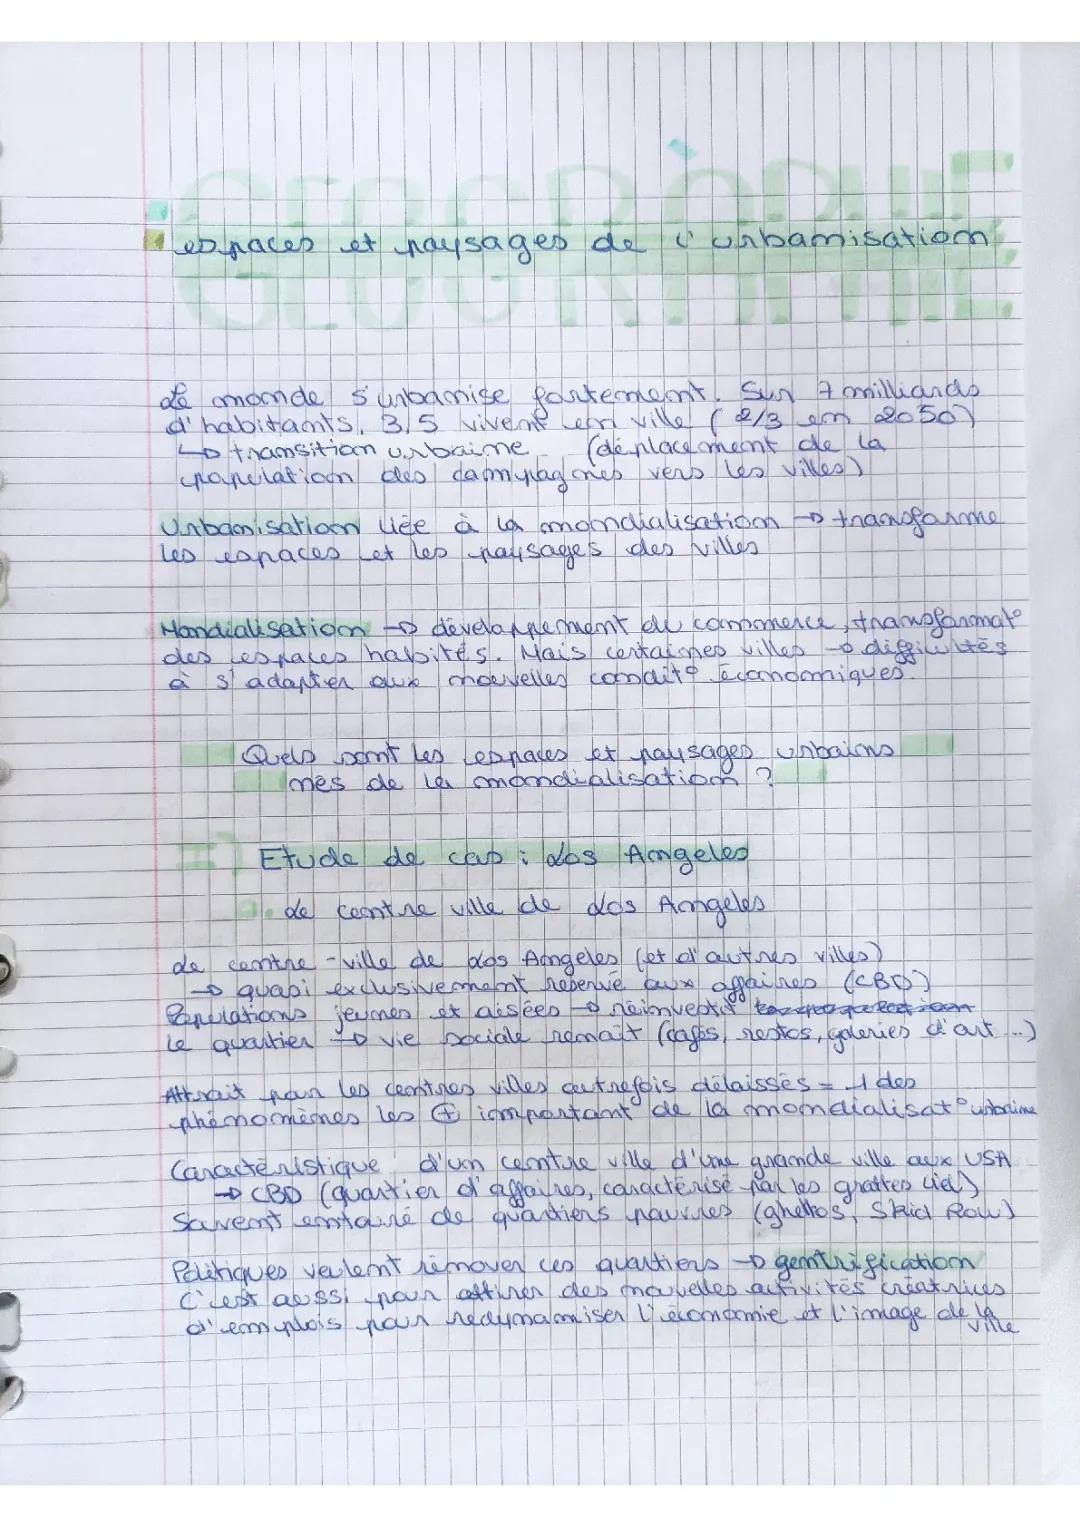 GEOGRAPHIE
espaces et paysages de l'urbanisation
GEOGRAPHIE
Le monde s'urbanise fortement. Sur 7 milliards
d'habitants, 3,5 vivent en ville (2/3 en 2050)
↳ transition urbaine (déplacement de la
population des campagnes vers les villes)
Urbanisation liée à la mondialisation → transforme
les espaces et les paysages des villes
Mondialisation → développement du commerce, transformat°
des espaces habités. Mais certaines villes → difficultés
à s'adapter aux nouvelles condit° économiques.
Quels sont les espaces et paysages urbains
nés de la mondialisation ?
I) Etude de cas : Los Angeles
Le centre ville de Los Angeles
Le centre-ville de Los Angeles (et d'autres villes)
→ quasi exclusivement réservé aux affaires (CBD)
Populations jeunes et aisées → réinvestit
le quartier → vie sociale renait (cafés, restos, galeries d'art ...)
Attrait pour les centres villes autrefois délaissés = 1 des
phénomènes les ⊕ important de la mondialisat° urbaine
Caractéristique d'un centre ville d'une grande ville aux USA
→ CBD (quartier d'affaires, caractérisé par les grattes ciel)
Souvent entouré de quartiers pauvres (ghettos, Skid Row)
Politiques veulent rénover ces quartiers → gentrification
C'est aussi pour attirer des nouvelles activités créatrices
d'emplois pour redynamiser l'économie et l'image de la
ville